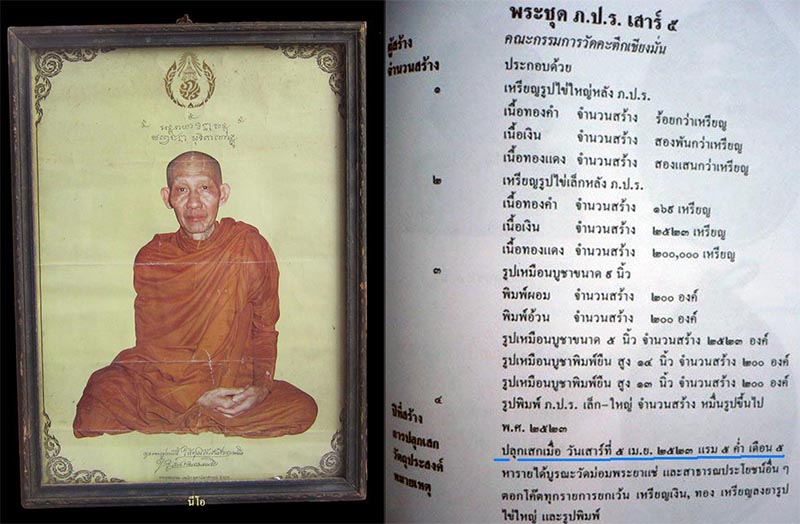 นีโอ
พระชุด ภ.ป.ร. เสาร์ ๕
ผู้สร้าง คณะกรรมการวัดคะตึกเชียงมั่น
จำนวนสร้าง ประกอบด้วย
๑ เหรียญรูปไข่ใหญ่หลัง ภ.ป.ร.
เนื้อทองคำ จำนวนสร้าง ร้อยกว่าเหรียญ
เนื้อเงิน จำนวนสร้าง สองพันกว่าเหรียญ
เนื้อทองแดง จำนวนสร้าง สองแสนกว่าเหรียญ
๒ เหรียญรูปไข่เล็กหลัง ภ.ป.ร.
เนื้อทองคำ จำนวนสร้าง ๑๖๙ เหรียญ
เนื้อเงิน จำนวนสร้าง ๒๕๒๓ เหรียญ
เนื้อทองแดง จำนวนสร้าง ๒๐๐,๐๐๐ เหรียญ
๓ รูปเหมือนบูชาขนาด ๙ นิ้ว
พิมพ์ผอม จำนวนสร้าง ๒๐๐ องค์
พิมพ์อ้วน จำนวนสร้าง ๒๐๐ องค์
รูปเหมือนบูชาขนาด ๕ นิ้ว จำนวนสร้าง ๒๕๒๓ องค์
รูปเหมือนบูชาพิมพ์ยืน สูง ๑๔ นิ้ว จำนวนสร้าง ๒๐๐ องค์
รูปเหมือนบูชาพิมพ์ยืน สูง ๑๓ นิ้ว จำนวนสร้าง ๒๐๐ องค์
๔ รูปพิมพ์ ภ.ป.ร. เล็ก-ใหญ่ จำนวนสร้าง หมื่นรูปขึ้นไป
ปีที่สร้าง พ.ศ. ๒๕๒๓
การปลุกเสก ปลุกเสกเมื่อ วันเสาร์ที่ ๕ เม.ย. ๒๕๒๓ แรม ๕ ค่ำ เดือน ๕
วัตถุประสงค์ หารายได้บูรณะวัดม่อมพระยาแช่ และสาธารณประโยชน์อื่น ๆ
หมายเหตุ ตอกโค๊ตทุกรายการยกเว้น เหรียญเงิน, ทอง เหรียญลงยารูป
ไข่ใหญ่ และรูปพิมพ์